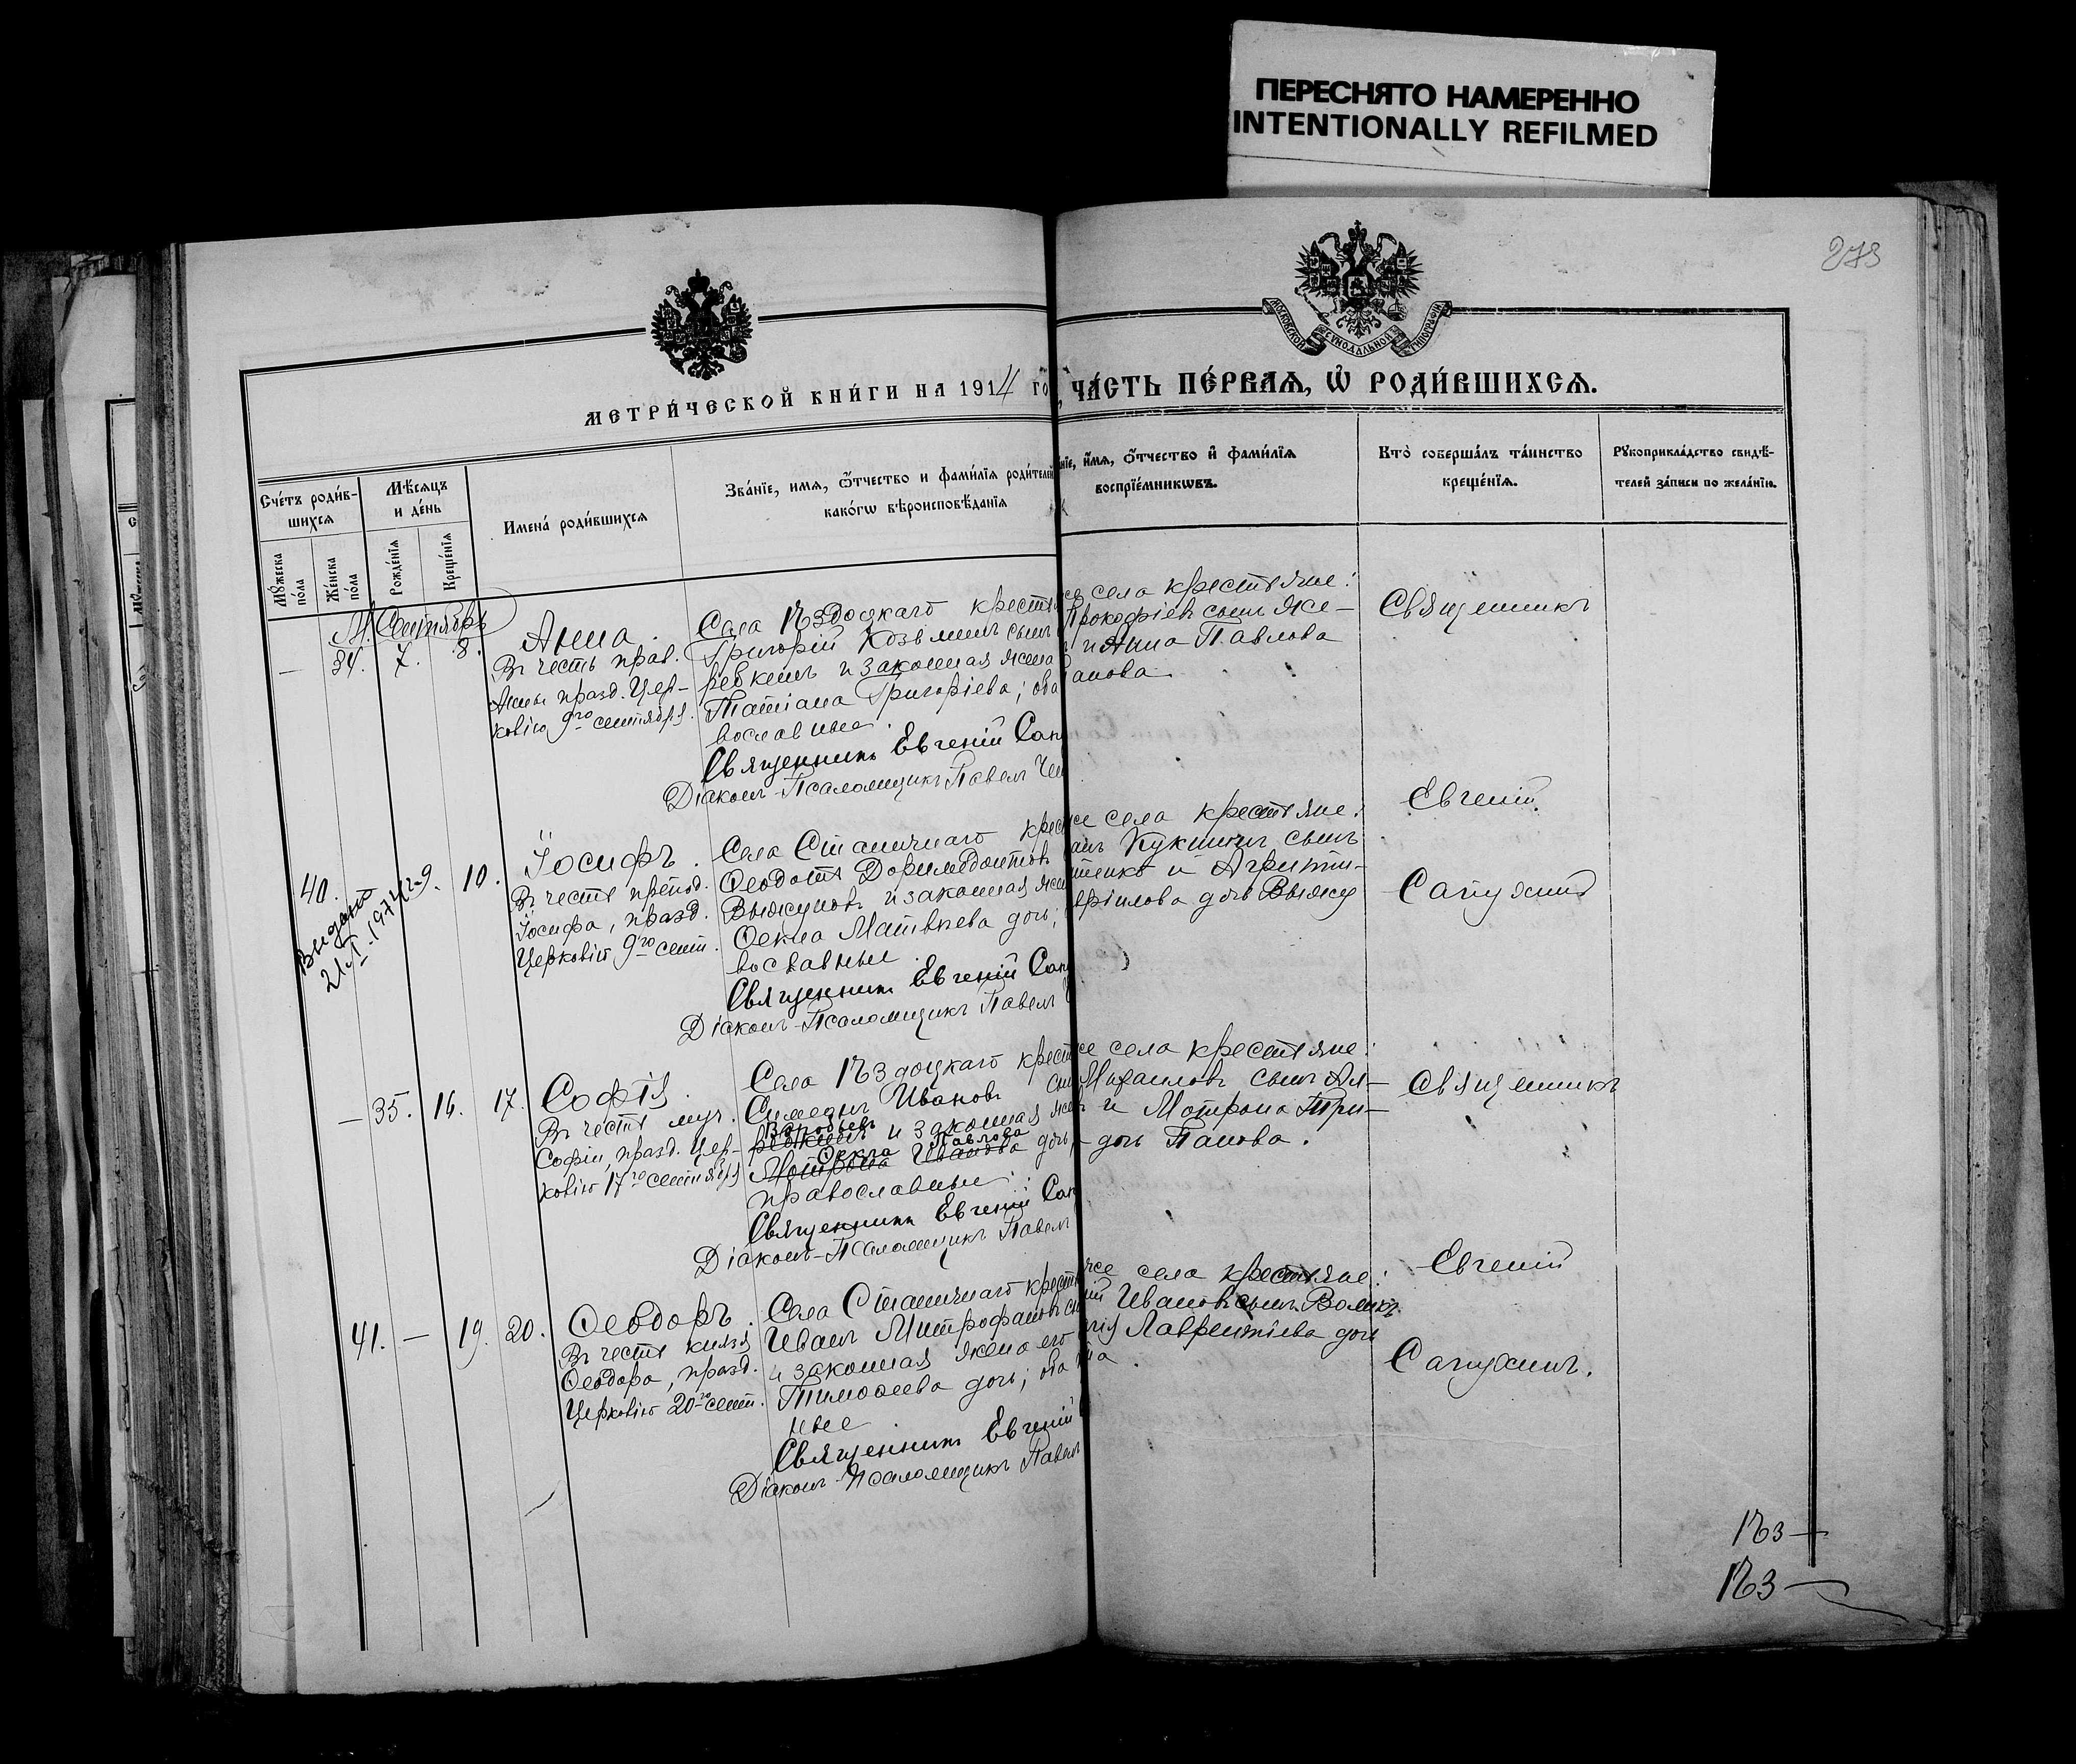 ПЕРЕСНЯТО НАМЕРЕННО
INTENTIONALLY REFILMED
273
МОСКОВСКОЙ СѴНОДАЛЬНОЙ ТИПОГРАФІИ
МЕТРИ́ЧЕСКОЙ КНИ́ГИ НА 1914 ГО
, ЧА́СТЬ ПЕ́РВАѦ, Ѡ҆ РОДИ́ВШИХСѦ.
Сче́тъ роди́в-
шихсѧ
Му́жеска по́ла
Же́нска по́ла
Мѣ́сѧцъ
и де́нь
Рожде́нїѧ
Креще́нїѧ
Имена́ роди́вшихсѧ
Зва́нїе, имѧ, ѻ҆́тчество и фами́лїѧ роди́телей
како́гѡ вѣроисповѣ́данїѧ
нїе, и҆́мѧ, ѻ҆́тчество и҆ фами́лїѧ
воспрїе́мникѡвъ.
Кто̀ соверша́лъ та́инство
креще́нїѧ.
Рꙋкоприкла́дство свидѣ́-
телей за́писи по жела́нїю.
М. Сентябрь
— 34. 7. 8.
Анна.
Въ честь прав.
Анны празд. Цер-
ковію 9го сентября.
Села Ѣздоцкаго крестья
Григорій Козьминъ сынъ
ребкинъ и законная жена
Татіана Григоріева; оба
вославные.
Священникъ Евгеній Сап
Діаконъ-Псаломщикъ Павелъ Чеп
се села крестьяне:
Прокофіевъ сынъ Же-
и Анна Павлова
Панова.
Священникъ
40. 9. 10.
Выдано
21/I-1974 г.
Іосифъ.
Въ честь препод.
Іосифа, празд.
Церковію 9го сент.
Села Станичнаго крес
Ѳеодотъ Доримедонтовъ
Выжуновъ и законная жен
Ѳекла Матвѣева дочь;
вославные.
Священникъ Евгеній Сап
Діаконъ-Псаломщикъ Павелъ
се села крестьяне:
сынъ
и Агрипи-
дочь Выжу
Евгеній
Сапухинъ
— 35. 16. 17.
Софія.
Въ честь муч.
Софіи, празд. Цер-
ковію 17го сентября
Села Ѣздоцкаго крест
Симеонъ Ивановъ сын
Воробьевъ
и законная жен
Ѳекла Павлова
Матрона Иванова дочь,
православные.
Священникъ Евгеній Сап
Діаконъ-Псаломщикъ Павелъ
се села крестьяне:
Михаиловъ сынъ
и Матрона Три-
дочь Панова.
Священникъ
41. — 19. 20.
Ѳеодоръ.
Въ честь князя
Ѳеодора, празд.
Церковію 20го сент.
Села Станичнаго крестья
Иванъ Митрофановъ сы
и законная жена его
Тимоѳеева дочь; оба
ные
Священникъ Евгеній
Діаконъ-Псаломщикъ Павелъ
же села крестьяне:
ій Ивановъ сынъ
Лаврентіева дочь
Евгеній
Сапухинъ.
Ѣз —
Ѣз —